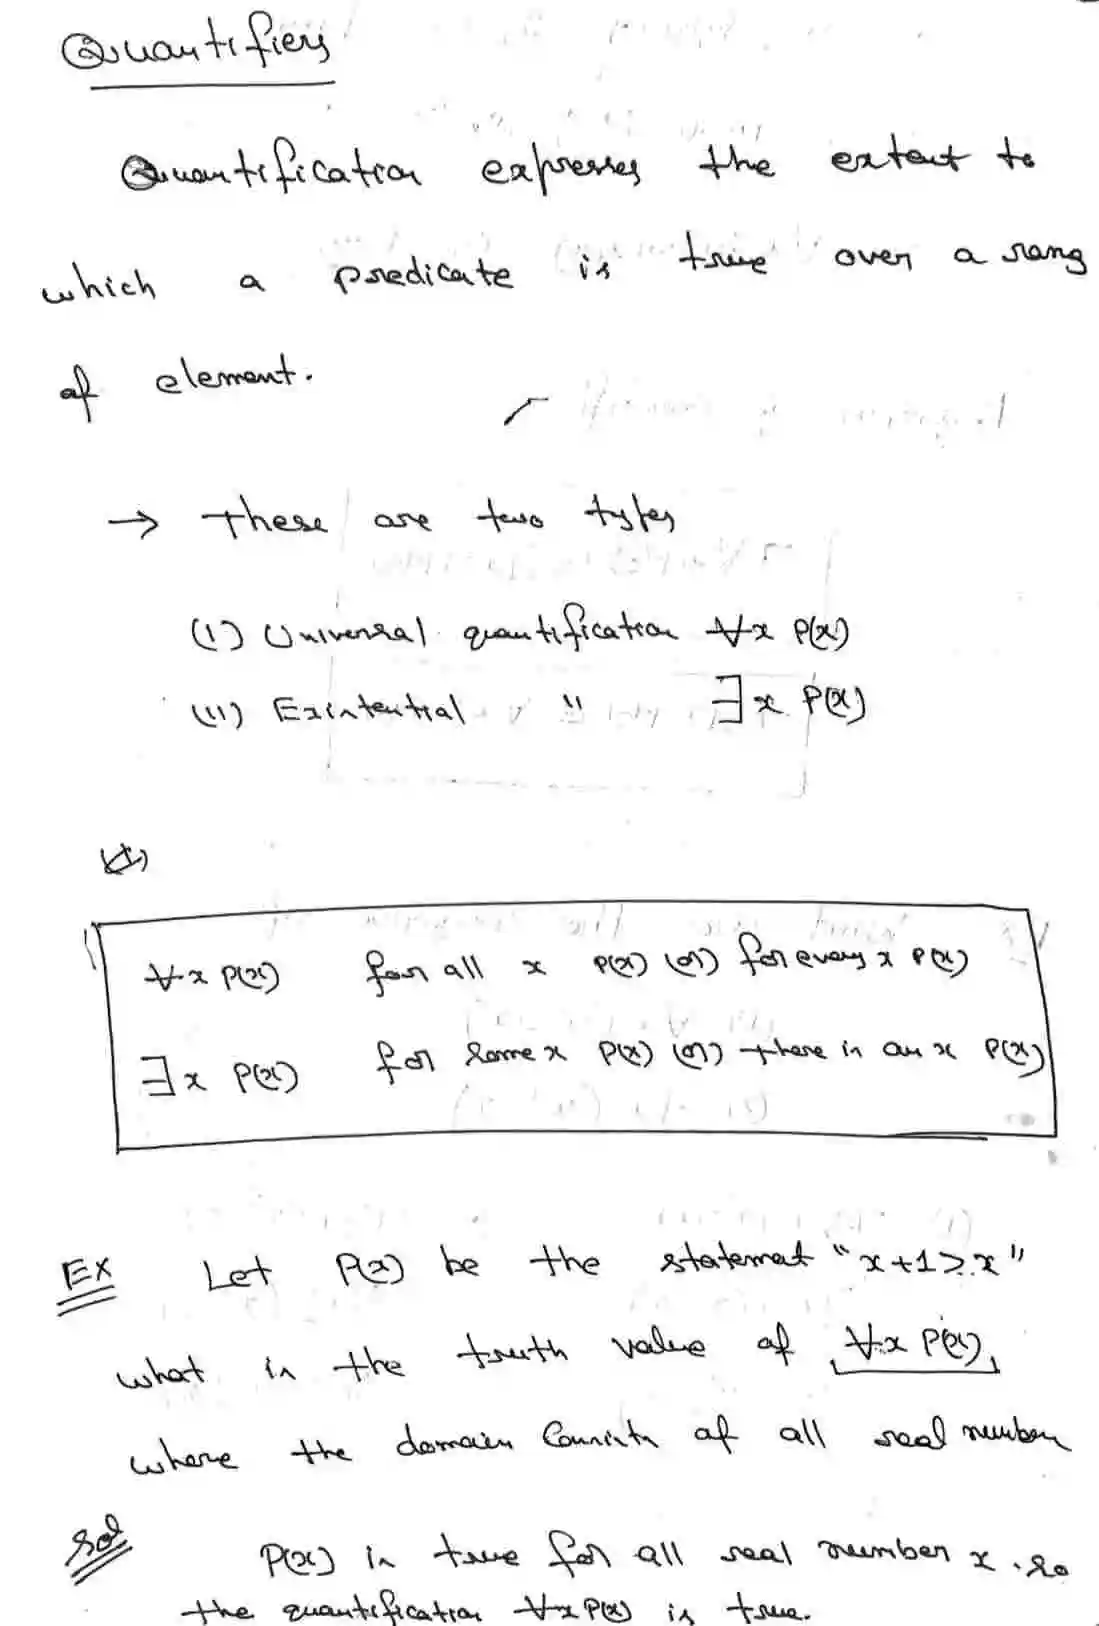 Quantifiers
Quantification expresses the extent to
which a predicate is true over a rang
of element.
→ These are two types
(i) Universal quantification ∀x P(x)
(ii) Existential " ∃x P(x)
∀x P(x) for all x P(x) (or) for every x P(x)
∃x P(x) for some x P(x) (or) there is an x P(x)
Ex Let P(x) be the statement "x+1>x"
what is the truth value of ∀x P(x),
where the domain Consists of all real number
Sol P(x) is true for all real number x. so
the quantification ∀x P(x) is true.